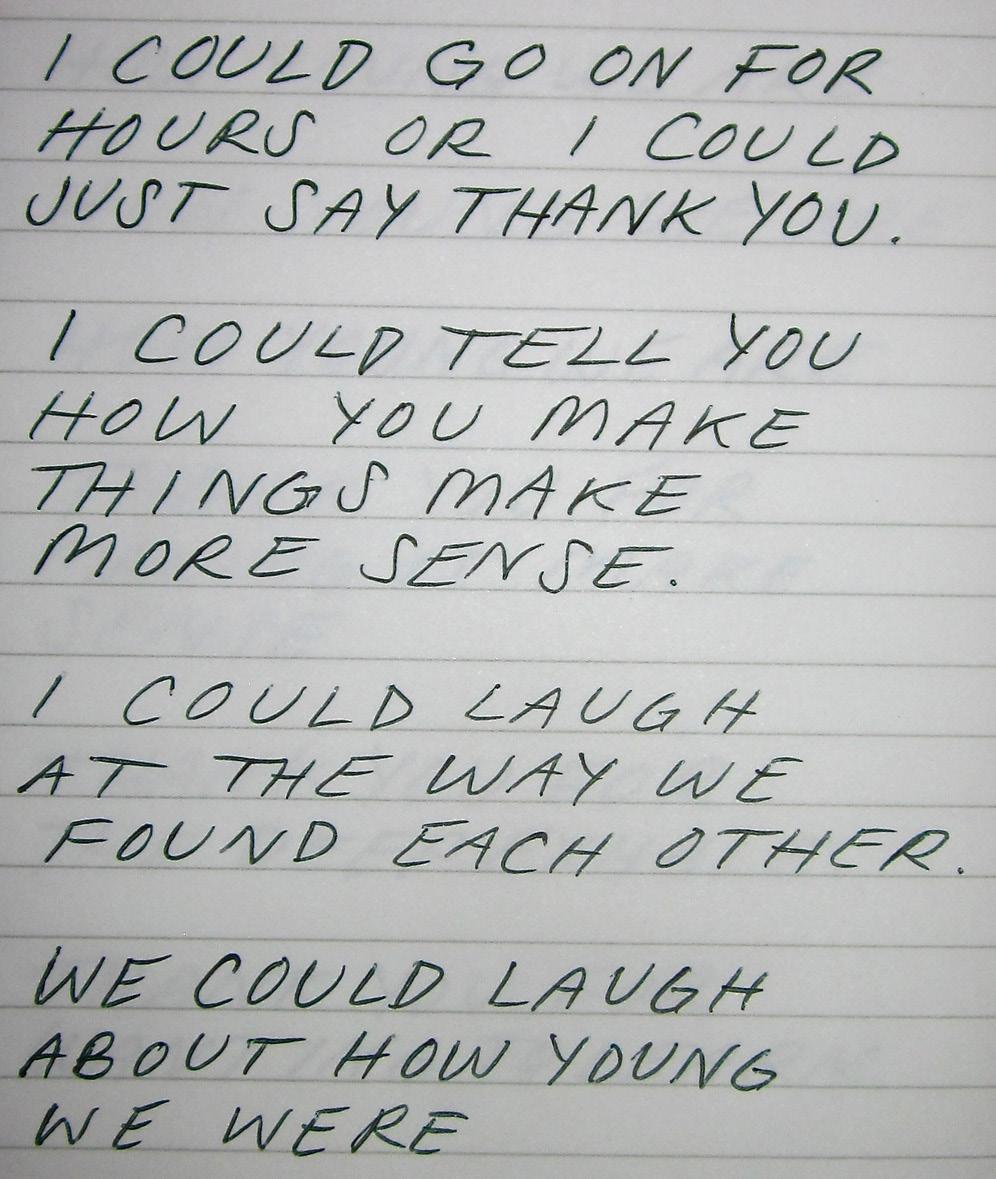 I COULD GO ON FOR
HOURS OR I COULD
JUST SAY THANK YOU.
I COULD TELL YOU
HOW YOU MAKE
THINGS MAKE
MORE SENSE.
I COULD LAUGH
AT THE WAY WE
FOUND EACH OTHER.
WE COULD LAUGH
ABOUT HOW YOUNG
WE WERE